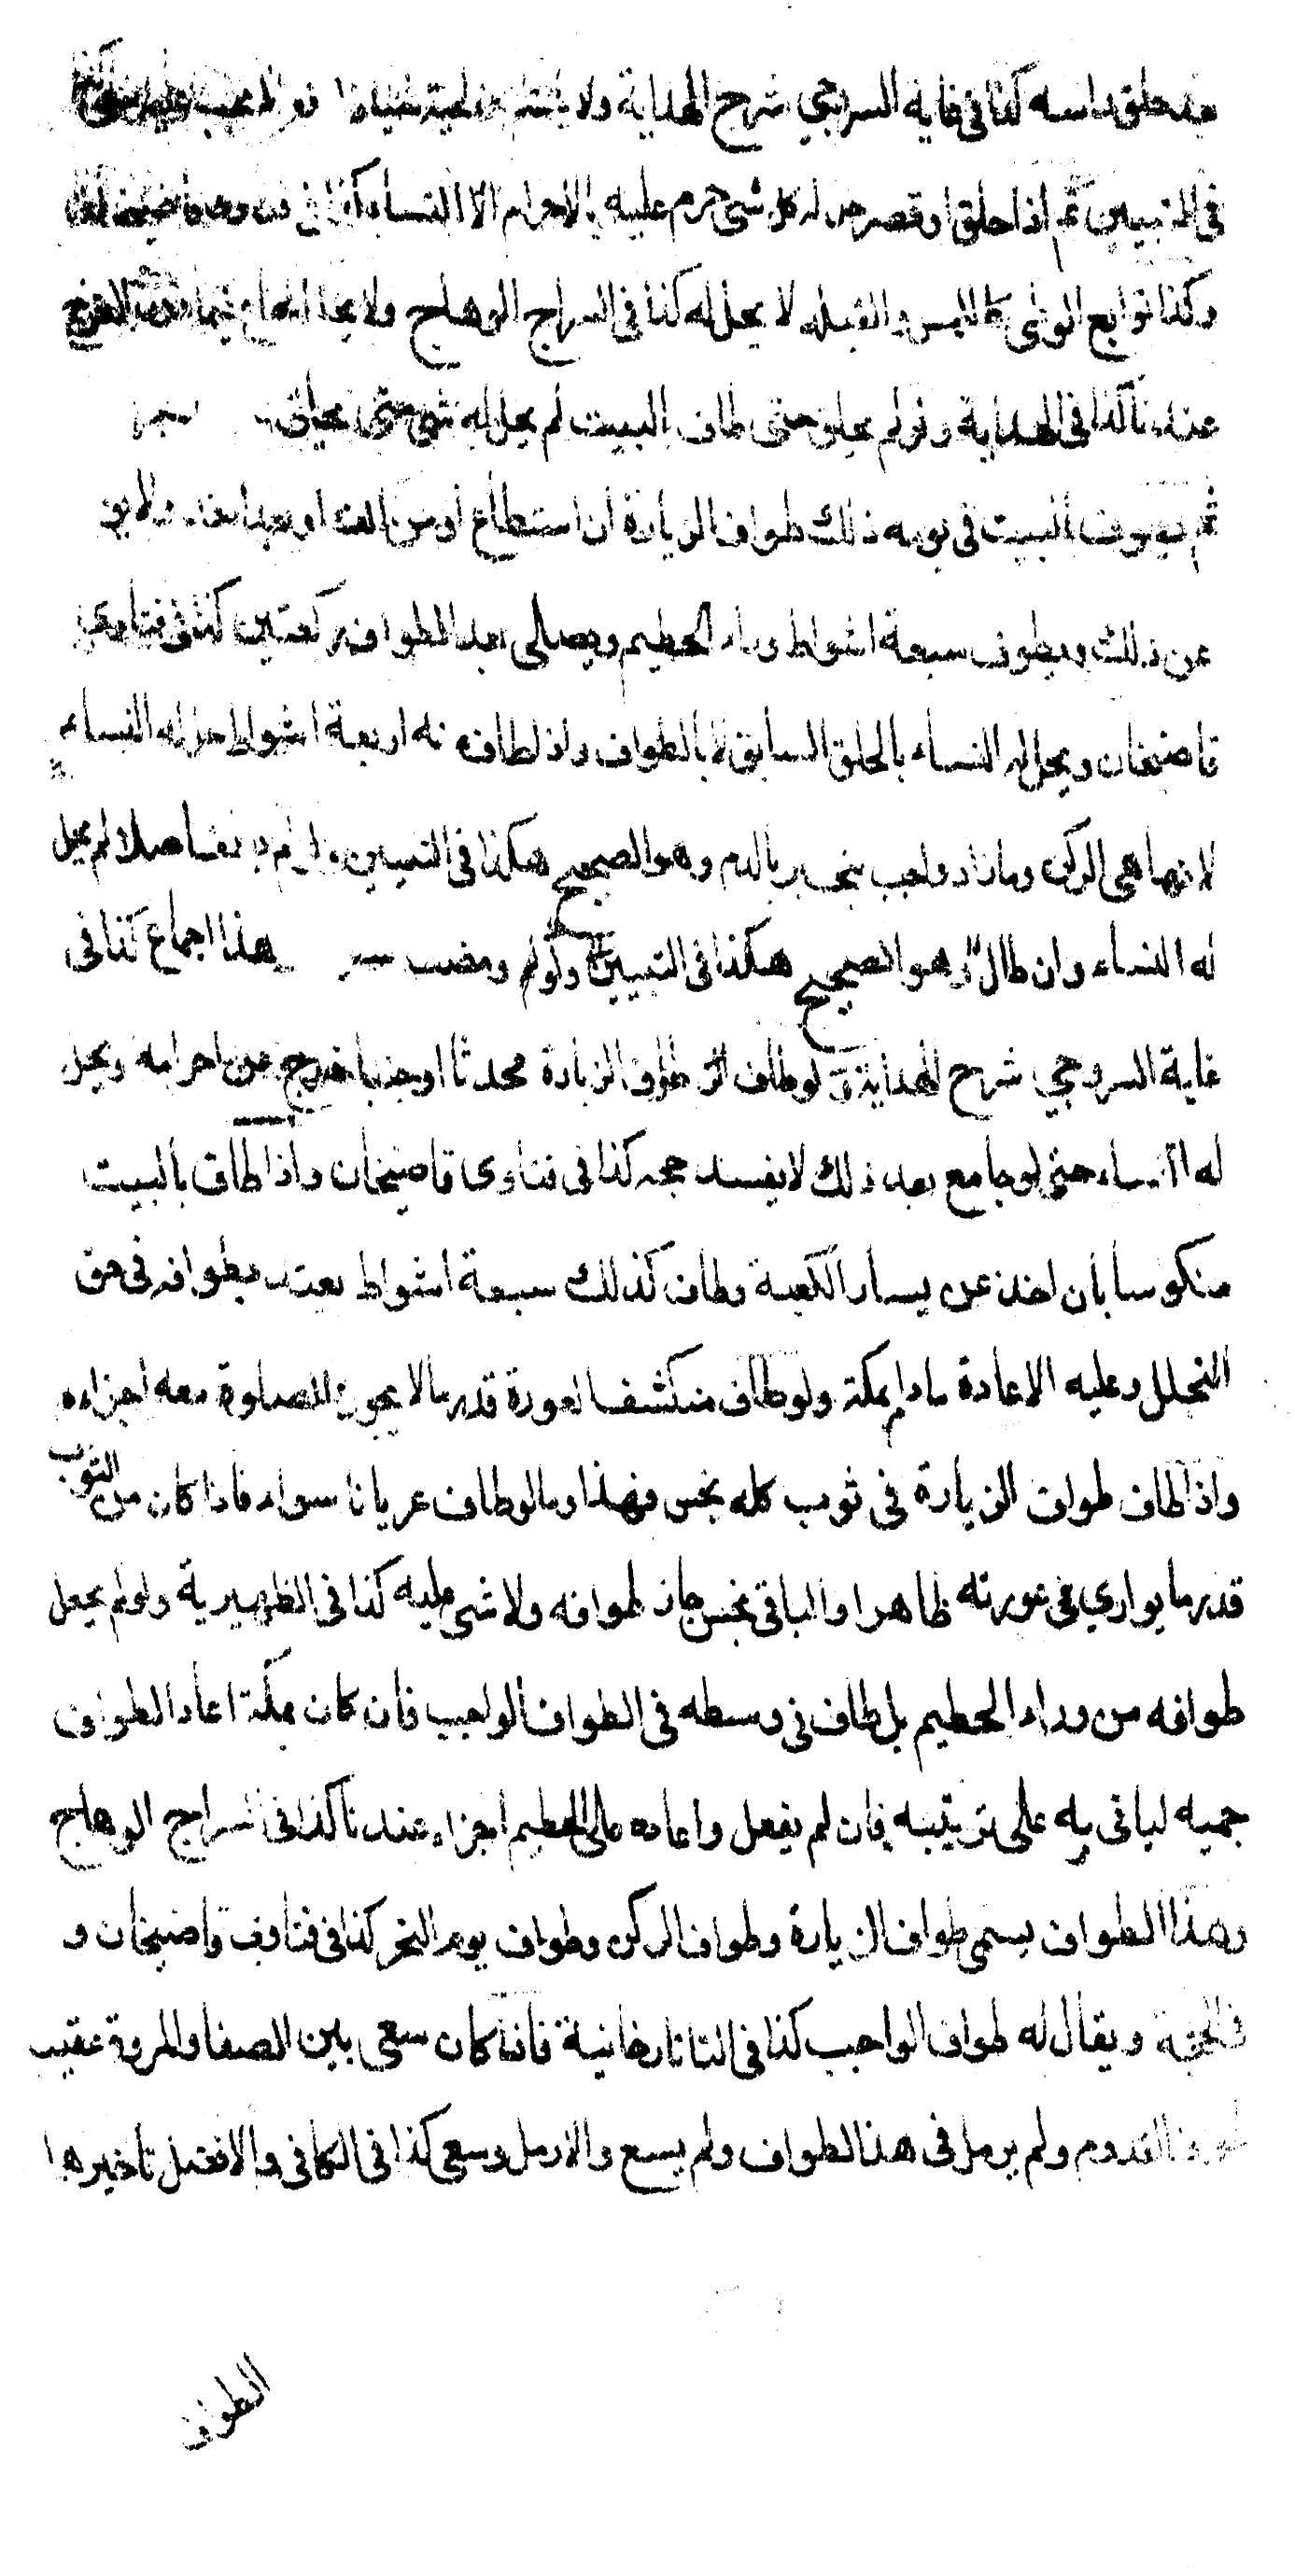 بعد حلق راسه كذا فى غاية السروجي شرح الهداية ولا
فى التبيين ثم اذا حلق او قصر حل له كل شى حرم عليه بالاحرام الا النساء كذا فى
وكذا توابع الوطى كاللمس والقبلة لا يحل له كذا فى السراج الوهاج ولا يحل الجماع فيما دون الفرج
عندنا كذا فى الهداية ولو لم يحلق حتى طاف بالبيت لم يحل له شى حتى يحلق
ثم يطوف بالبيت فى يومه ذلك طواف الزيارة ان استطاع او من الغد او بعد الغد ولا يؤخر
عن ذلك ويطوف سبعة اشواط وراء الحطيم ويصلى بعد الطواف ركعتين كذا فى فتاوى
قاضيخان ويحل له النساء بالحلق السابق لا بالطواف واذا طاف منه اربعة اشواط حل له النساء
لانها هى الركن وما زاد واجب ينجبر بالدم وهو الصحيح هكذا فى التبيين ولو لم يطف اصلا لم يحل
له النساء وان طال وهو الصحيح هكذا فى التبيين ولو لم ومضت هذا اجماع كذا فى
غاية السروجي شرح الهداية ولو طاف طواف الزيارة محدثا او جنبا خرج من احرامه ويحل
له النساء حتى لو جامع بعد ذلك لا يفسد حجه كذا فى فتاوى قاضيخان واذا طاف بالبيت
منكوسا بان اخذ عن يسار الكعبة وطاف كذلك سبعة اشواط يعتد بطوافه فى حق
التحلل وعليه الاعادة مادام بمكة ولو طاف منكشف العورة قدر ما لا يجوز الصلوة معه اجزاءه
واذا طاف طواف الزيارة فى ثوب كله نجس فهذا وما لو طاف عريانا سواء فاذا كان من الثوب
قدر ما يوارى عورته طاهرا والباقى نجس جاز طوافه ولا شى عليه كذا فى الظهيرية ولو لم يجعل
طوافه من وراء الحطيم بل طاف فى وسطه فى الطواف الواجب فان كان بمكة اعاد الطواف
جميه لياتى به على ترتيبه فان لم يفعل واعاده على الحطيم اجزاء عندنا كذا فى السراج الوهاج
وهذا الطواف يسمى طواف الزيارة وطواف الركن وطواف يوم النحر كذا فى فتاوى قاضيخان و
فى الحجة ويقال له طواف الواجب كذا فى التاتارخانية فاذا كان سعى بين الصفا والمروة عقيب
طواف القدوم ولم يرمل فى هذا الطواف ولم يسع والا رمل وسعى كذا فى الكافى والافضل تاخيرها
الطواف